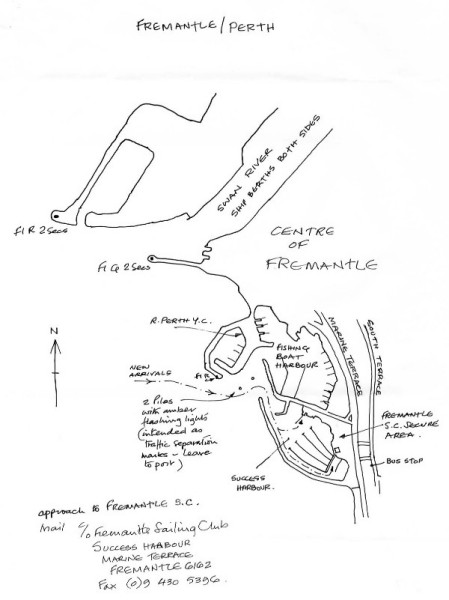 FREMANTLE/PERTH
SWAN RIVER
SHIP BERTHS BOTH SIDES
fl R 2 Secs
CENTRE
OF
FREMANTLE
Fl G 2 Secs
R. PERTH Y.C.
FISHING
BOAT
HARBOUR
MARINE TERRACE
SOUTH TERRACE
N
NEW
ARRIVALS
Fl R
2 Piles
with amber
flashing lights
(intended as
Traffic Separation
marks - leave
to port)
FREMANTLE
S.C. SECURE
AREA.
BUS STOP
SUCCESS
HARBOUR.
approach to FREMANTLE S.C.
Mail c/o Fremantle Sailing Club
SUCCESS HARBOUR
MARINE TERRACE
FREMANTLE 6162
Fax (0)9 430 5396.